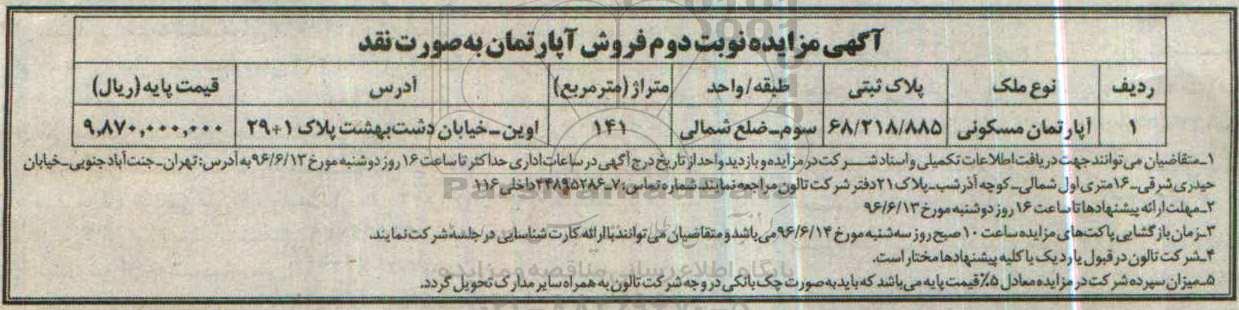 آگهی مزایده نوبت دوم فروش آپارتمان به صورت نقد
ردیف نوع ملک پلاک ثبتی طبقه/واحد متراژ (مترمربع) آدرس قیمت پایه (ریال)
۱ آپارتمان مسکونی ۶۸/۲۱۸/۸۸۵ سوم-ضلع شمالی ۱۴۱ اوین-خیابان دشت‌بهشت پلاک ۱+۲۹ ۹,۸۷۰,۰۰۰,۰۰۰
۱-متقاضیان می‌توانند جهت دریافت اطلاعات تکمیلی و اسناد شرکت در مزایده و بازدید واحد از تاریخ درج آگهی در ساعات اداری حداکثر تا ساعت ۱۶ روز دوشنبه مورخ ۹۶/۶/۱۳ به آدرس: تهران-جنت‌آباد جنوبی-خیابان
حیدری شرقی-۱۶متری اول شمالی-کوچه آذرشب-پلاک ۲۱ دفتر شرکت تالون مراجعه نمایند. شماره تماس: ۷-۴۴۸۹۵۲۸۶ داخلی ۱۱۶
۲-مهلت ارائه پیشنهادها تا ساعت ۱۶ روز دوشنبه مورخ ۹۶/۶/۱۳
۳-زمان بازگشایی پاکت‌های مزایده ساعت ۱۰ صبح روز سه‌شنبه مورخ ۹۶/۶/۱۴ می‌باشد و متقاضیان می‌توانند با ارائه کارت شناسایی در جلسه شرکت نمایند.
۴-شرکت تالون در قبول یا رد یک یا کلیه پیشنهادها مختار است.
۵-میزان سپرده شرکت در مزایده معادل ۵٪ قیمت پایه می‌باشد که باید به صورت چک بانکی در وجه شرکت تالون به همراه سایر مدارک تحویل گردد.
ParsNamadData
پایگاه اطلاع رسانی مناقصه و مزایده